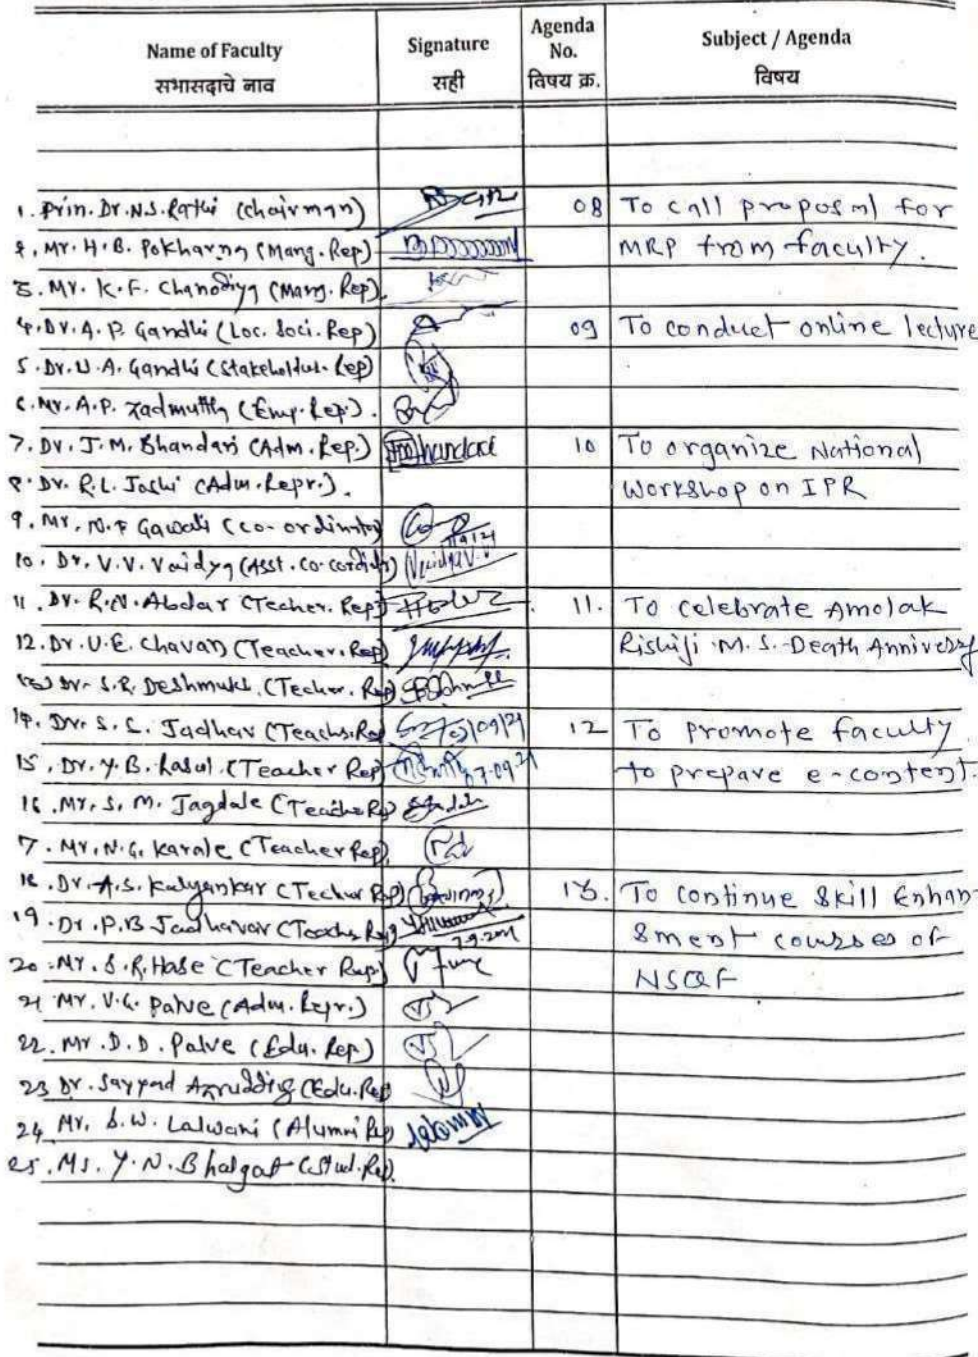 Name of Faculty
सभासदाचे नाव
Signature
सही
Agenda
No.
विषय क्र.
Subject / Agenda
विषय
1. Prin. Dr. N.S. Rathi (Chairman)
08 To call proposal for
2. Mr. H. B. Pokharna (Mang. Rep)
MRP from faculty.
3. Mr. K.F. Chanodiya (Mang. Rep).
4. Dr. A. P. Gandhi (Loc. Soci. Rep)
09 To conduct online lecture
5. Dr. U. A. Gandhi (Stakeholder. Rep)
6. Mr. A.P. (Emp. Rep.).
7. Dr. J. M. Bhandari (Adm. Rep.)
10 To organize National
8. Dr. R.L. Joshi (Adm. Repr.).
Workshop on IPR
9. Mr. N. F Gawali (co-ordinator)
10. Dr. V. V. Vaidya (Asst. co-cordintr) Vaidya V.V
11. Dr. R.N. Abdar (Techer. Rep)
11. To celebrate Amolak
12. Dr. U. E. Chavan (Teacher. Rep)
Rishiji M. S. Death Anniversy
Dr. S.R. Deshmukh. (Techer. Rep)
14. Dr. S. L. Jadhav (Teachs. Rep
12 To promote faculty.
15. Dr. Y. B. Rasul. (Teacher Rep) 7-09-21
to prepare e-content.
16. Mr. S. M. Jagdale (Teacher Rep)
7. Mr. N. G. Karale (Teacher Rep)
18. Dr. A.S. Kalyankar (Techer Rep)
13. To continue Skill Enhan-
19. Dr. P.B Jadhavar (Teachs. Rep) 7-9-2021
sment courses of
20. Mr. S. R. Hase (Teacher Rep.)
NSQF
21 Mr. V.G. Palve (Adm. Repr.)
22. Mr. D. D. Palve (Edu. Rep.)
23 Dr. Sayyad (Edu. Rep
24 Mr. S. W. Lalwani (Alumni Rep
25. Ms. Y. N. Bhalgat (Stud. Rep).